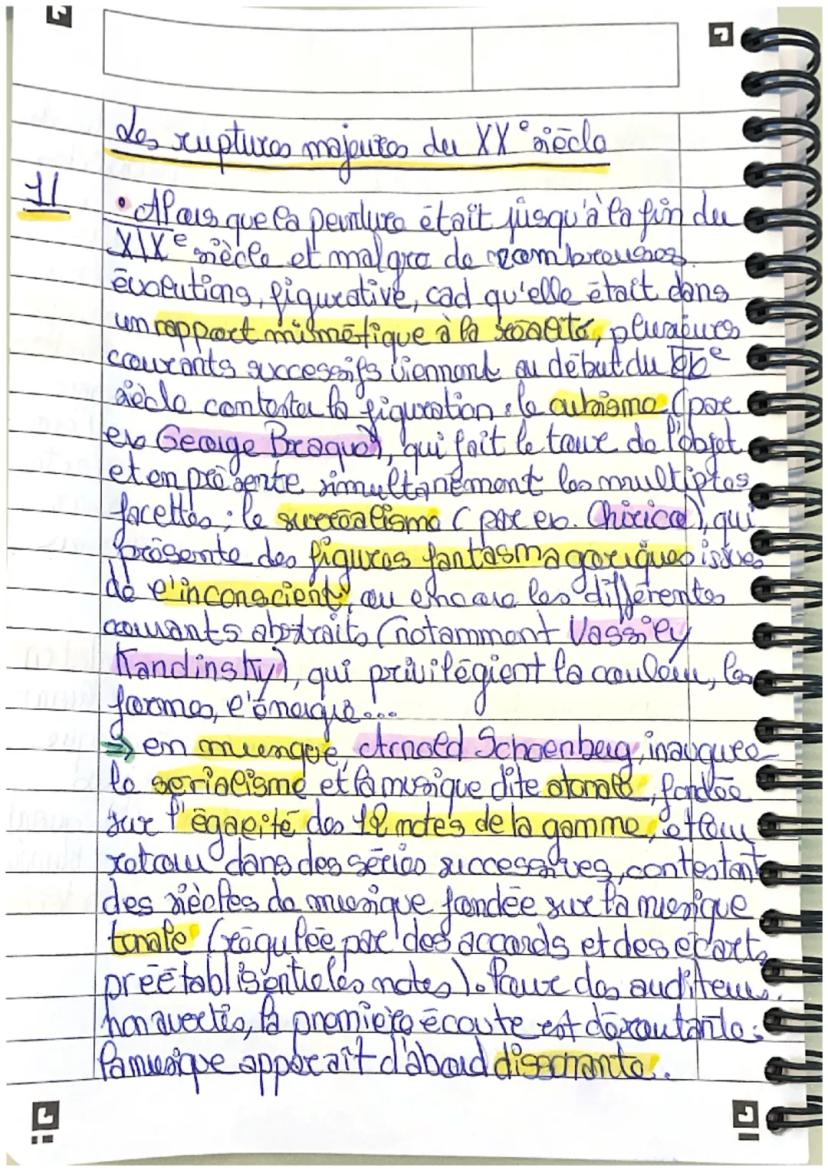 Les ruptures majeures du XXe siècle
1/
• Alors que la peinture était jusqu'à la fin du
XIXe siècle et malgré de nombreuses
évolutions, figurative, càd qu'elle était dans
un rapport mismétique à la réalité, plusieurs
courants successifs viennent au début du XXe
siècle contester la figuration : le cubisme (par
ex George Braque), qui fait le tour de l'objet
et en présente simultanément les multiples
facettes ; le surréalisme (par ex. Chirico), qui
présente des figures fantasmagoriques issues
de l'inconscient, ou encore les différents
courants abstraits (notamment Vassiley
Kandinsky), qui privilégient la couleur, les
formes, l'énergie...
→ en musique, Arnold Schoenberg, inaugure
le sérialisme et la musique dite atonale, fondée
sur l'égalité des 12 notes de la gamme, et leur
retour dans des séries successives, contestant
des siècles de musique fondée sur la musique
tonale (régulée par des accords et des écarts
préétablis entre les notes). Pour des auditeurs
non avertis, la première écoute est déroutante :
la musique apparaît d'abord dissonante.